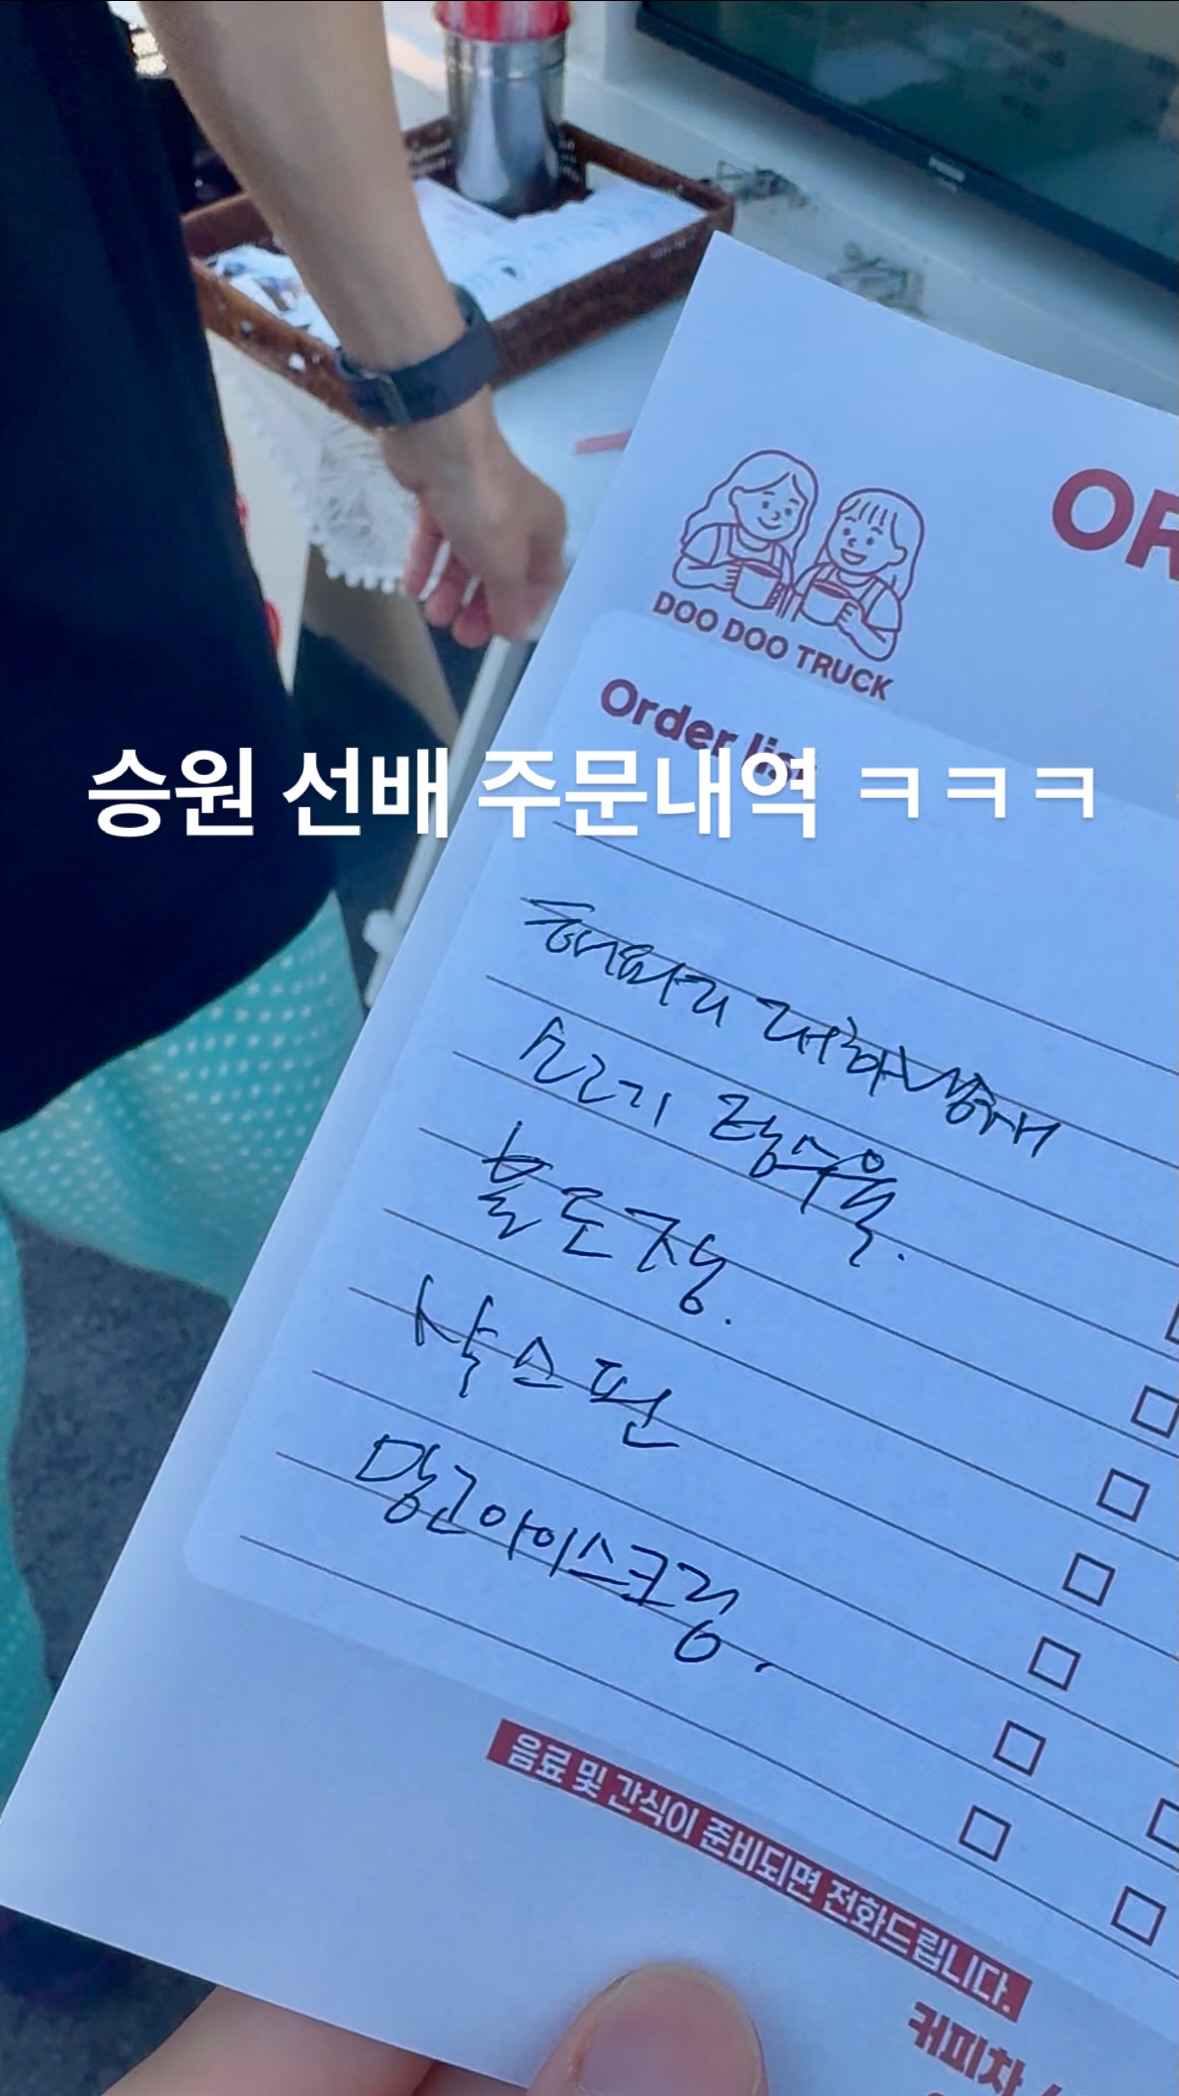 OR
DOO DOO TRUCK
Order list
승원 선배 주문내역 ㅋㅋㅋ
소고기 탕수육.
불도장.
샥스핀
망고아이스크림.
음료 및 간식이 준비되면 전화드립니다.
커피차